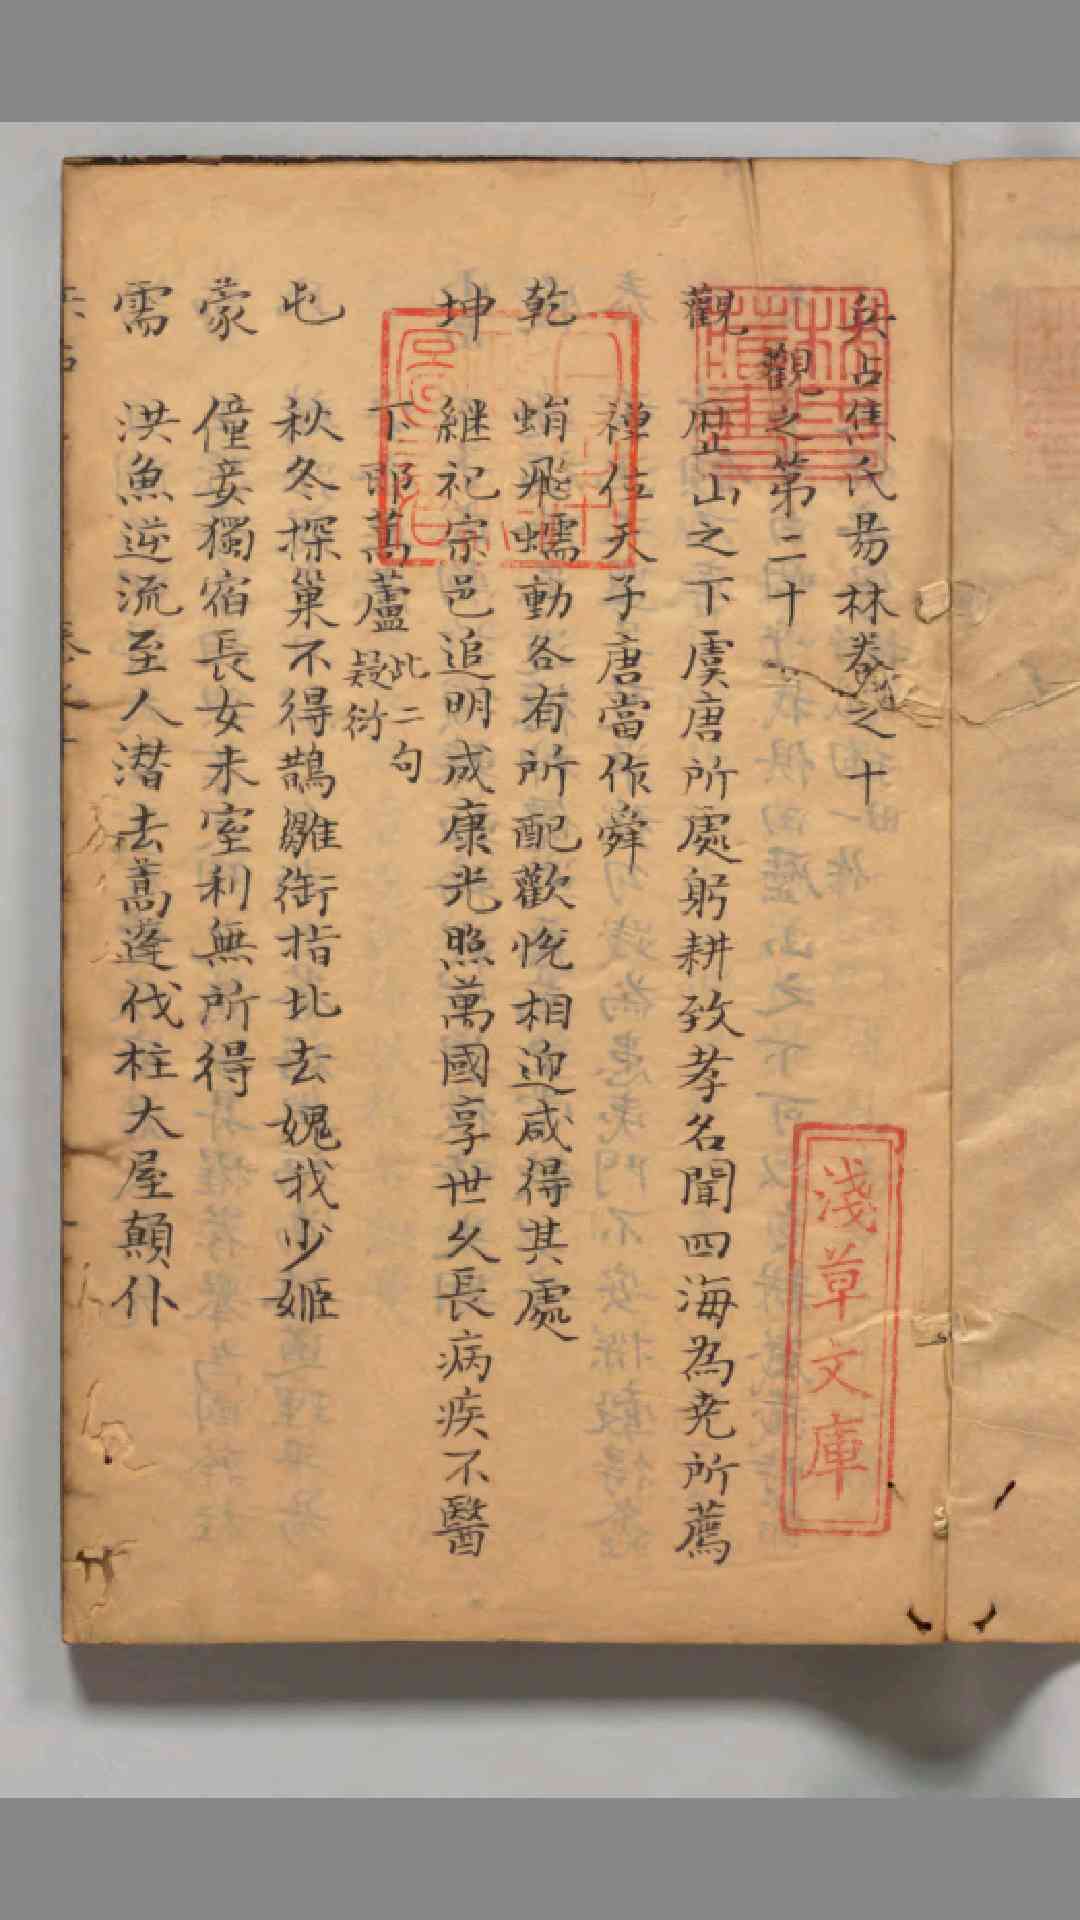 兵占焦氏易林卷之十
觀之第二十
觀 歴山之下虞唐所處躬耕致孝名聞四海為尭所薦
禪位天子唐當作舜
乾 蜎飛蠕動各有所配歡悅相迎咸得其處
坤 継祀宗邑追明成康光照萬國享世久長病疾不醫
下 郎蒿蘆此二句疑衍
屯 秋冬探巢不得鵲雛銜指北去媿我少姬
蒙 僮妾獨宿長女未室利無所得
需 洪魚逆流至人潛去蒿蓬伐柱大屋顛仆
淺草文庫